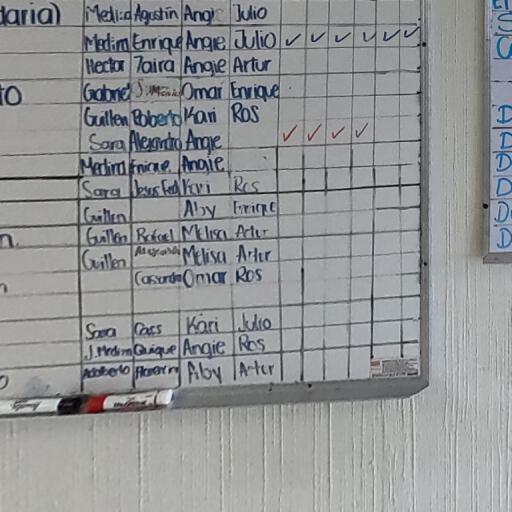 daria) Medina Agustin Angie Julio
Medina Enrique Angie Julio ✓ ✓ ✓ ✓ ✓ ✓
Hector Zaira Angie Artur
to Gabriel Omar Enrique
Guillen Roberto Kari Ros
Sara Alejandro Angie ✓ ✓ ✓ ✓
Medina Enrique Angie
Sara Kari Ros
Guillen Aby Enrique
n Guillen Rafael Melisa Artur
Guillen Melisa Artur
Omar Ros
Sara Cass Kari Julio
J.Medina Quique Angie Ros
Adalberto Aby Artur
D
D
D
D
D
D